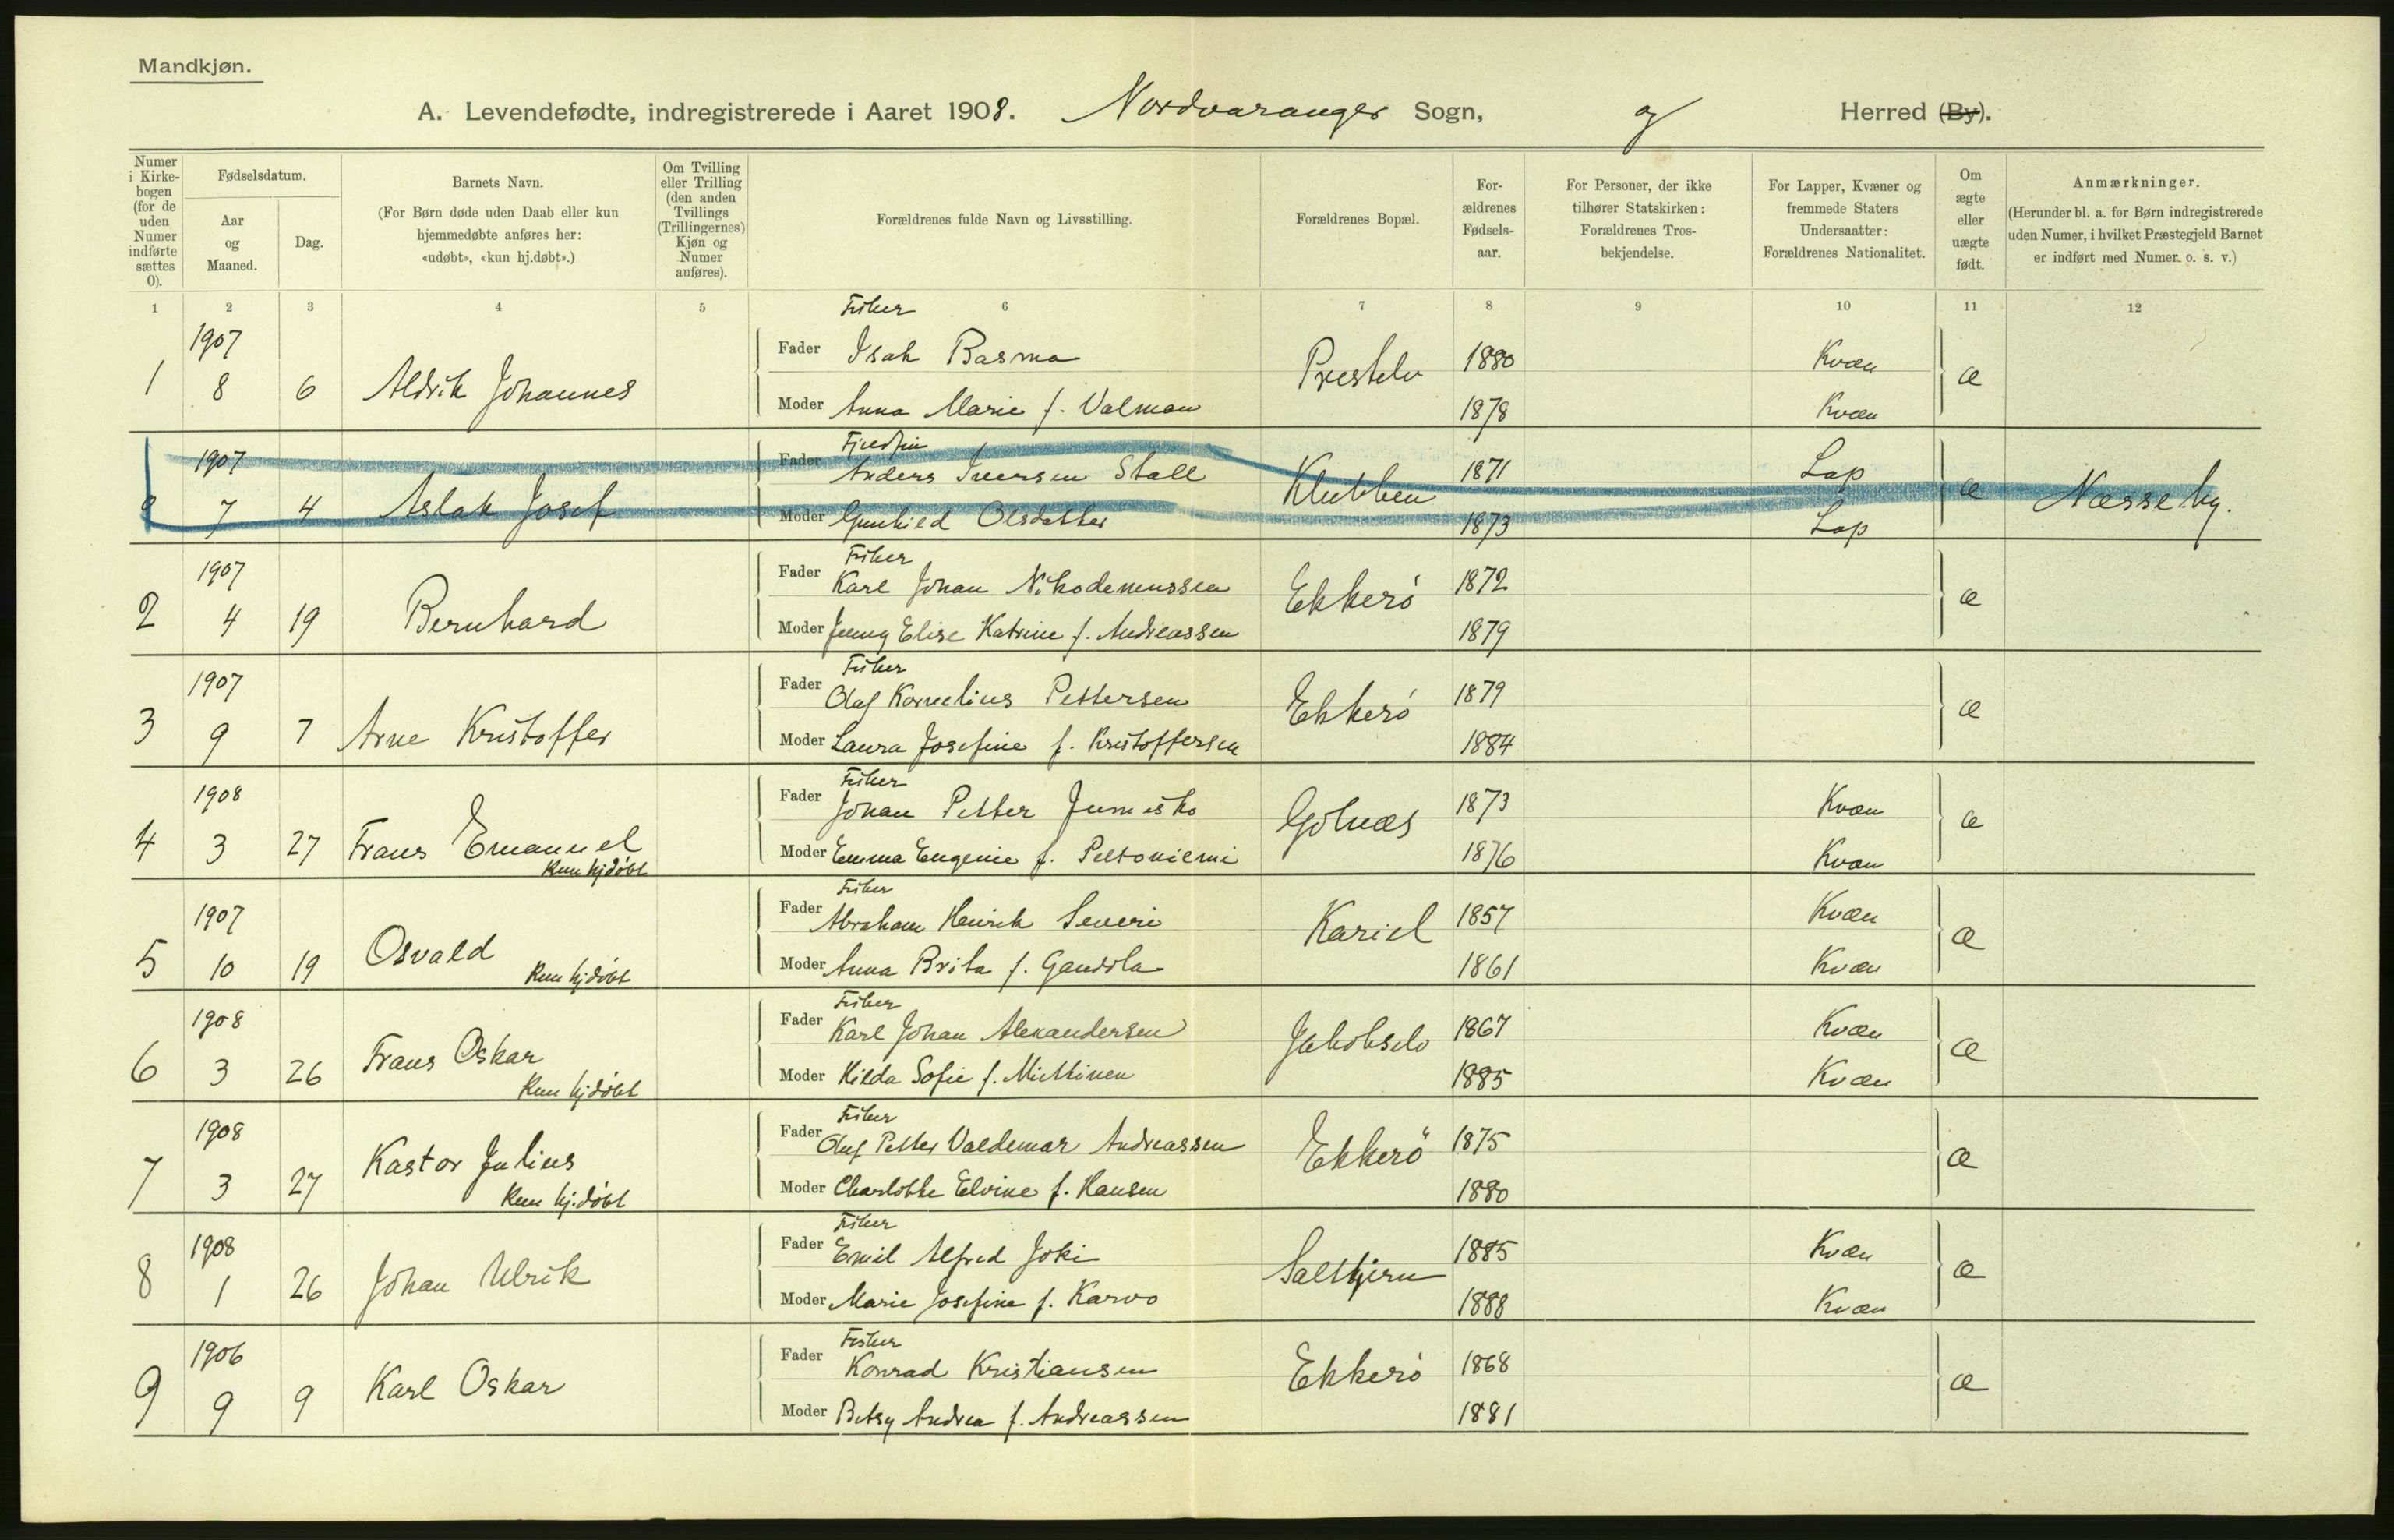 Mandkjøn.
A. Levendefødte, indregistrerede i Aaret 1908. Nordvaranger Sogn, og Herred (By).
Numer i Kirkebogen (for de uden Numer indførte sættes 0).
Fødselsdatum.
Aar og Maaned.
Dag.
Barnets Navn.
(For Børn døde uden Daab eller kun hjemmedøbte anføres her: «udøbt», «kun hj.døbt».)
Om Tvilling eller Trilling (den anden Tvillings (Trillingernes) Kjøn og Numer anføres).
Forældrenes fulde Navn og Livsstilling.
Forældrenes Bopæl.
Forældrenes Fødselsaar.
For Personer, der ikke tilhører Statskirken: Forældrenes Trosbekjendelse.
For Lapper, Kvæner og fremmede Staters Undersaatter: Forældrenes Nationalitet.
Om ægte eller uægte født.
Anmærkninger.
(Herunder bl. a. for Børn indregistrerede uden Numer, i hvilket Præstegjeld Barnet er indført med Numer o. s. v.)
1 2 3 4 5 6 7 8 9 10 11 12
Fisker
1907 Fader Isak Basma 1880 Kvæn
1 8 6 Aldrik Johannes Prestelv æ
Moder Anna Marie f. Valman 1878 Kvæn
Fjeldfin
1907 Fader Anders Iversen Stall 1871 Lap
7 4 Aslak Josef Klubben æ Nesseby.
Moder Gunhild Olsdatter 1873 Lap
Fisker
1907 Fader Karl Johan Nikodemussen 1872
2 4 19 Bernhard Ekkerö æ
Moder Jenny Elise Katrine f. Andreassen 1879
Fisker
1907 Fader Oluf Kornelius Pettersen 1879
3 9 7 Arne Kristoffer Ekkerö æ
Moder Laura Josefine f. Kristoffersen 1884
Fisker
1908 Fader Johan Petter Jumisko 1873 Kvæn
4 3 27 Frans Emanuel Golnæs æ
kun hjdöbt Moder Emma Eugenie f. Peltoniemi 1876 Kvæn
Fisker
1907 Fader Abraham Henrik Severi 1857 Kvæn
5 10 19 Osvald Kariel æ
kun hjdöbt Moder Anna Brita f. Gandola 1861 Kvæn
Fisker
1908 Fader Karl Johan Alexandersen 1867 Kvæn
6 3 26 Frans Oskar Jakobselv æ
kun hjdöbt Moder Hilda Sofie f. Miettinen 1885 Kvæn
Fisker
1908 Fader Oluf Petter Valdemar Andreassen 1875
7 3 27 Kastor Julius Ekkerö æ
kun hj.döbt Moder Charlotte Elvine f. Hansen 1880
Fisker
1908 Fader Emil Alfred Joki 1885 Kvæn
8 1 26 Johan Ulrik Saltkjern æ
Moder Marie Josefine f. Karvo 1888 Kvæn
Fisker
1906 Fader Konrad Kristiansen 1868
9 9 9 Karl Oskar Ekkerö æ
Moder Betsy Andrea f. Andreassen 1881